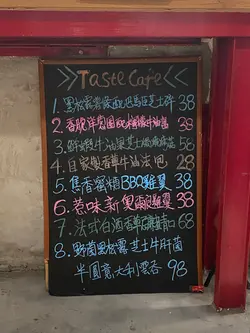 Taste Cafe
1. 黑松露薯條配巴馬芝士碎 38
2. 香脆洋蔥圈配 38
3. 鮮蝦牛油果芝士 56
4. 自家製香草牛油法包 28
5. 焦香蜜糖BBQ雞翼 38
6. 惹味新奧爾良雞翼 38
7. 法式白酒香草煮青口 68
8. 野菌黑松露芝士牛肝菌
半圓意大利雲吞 98